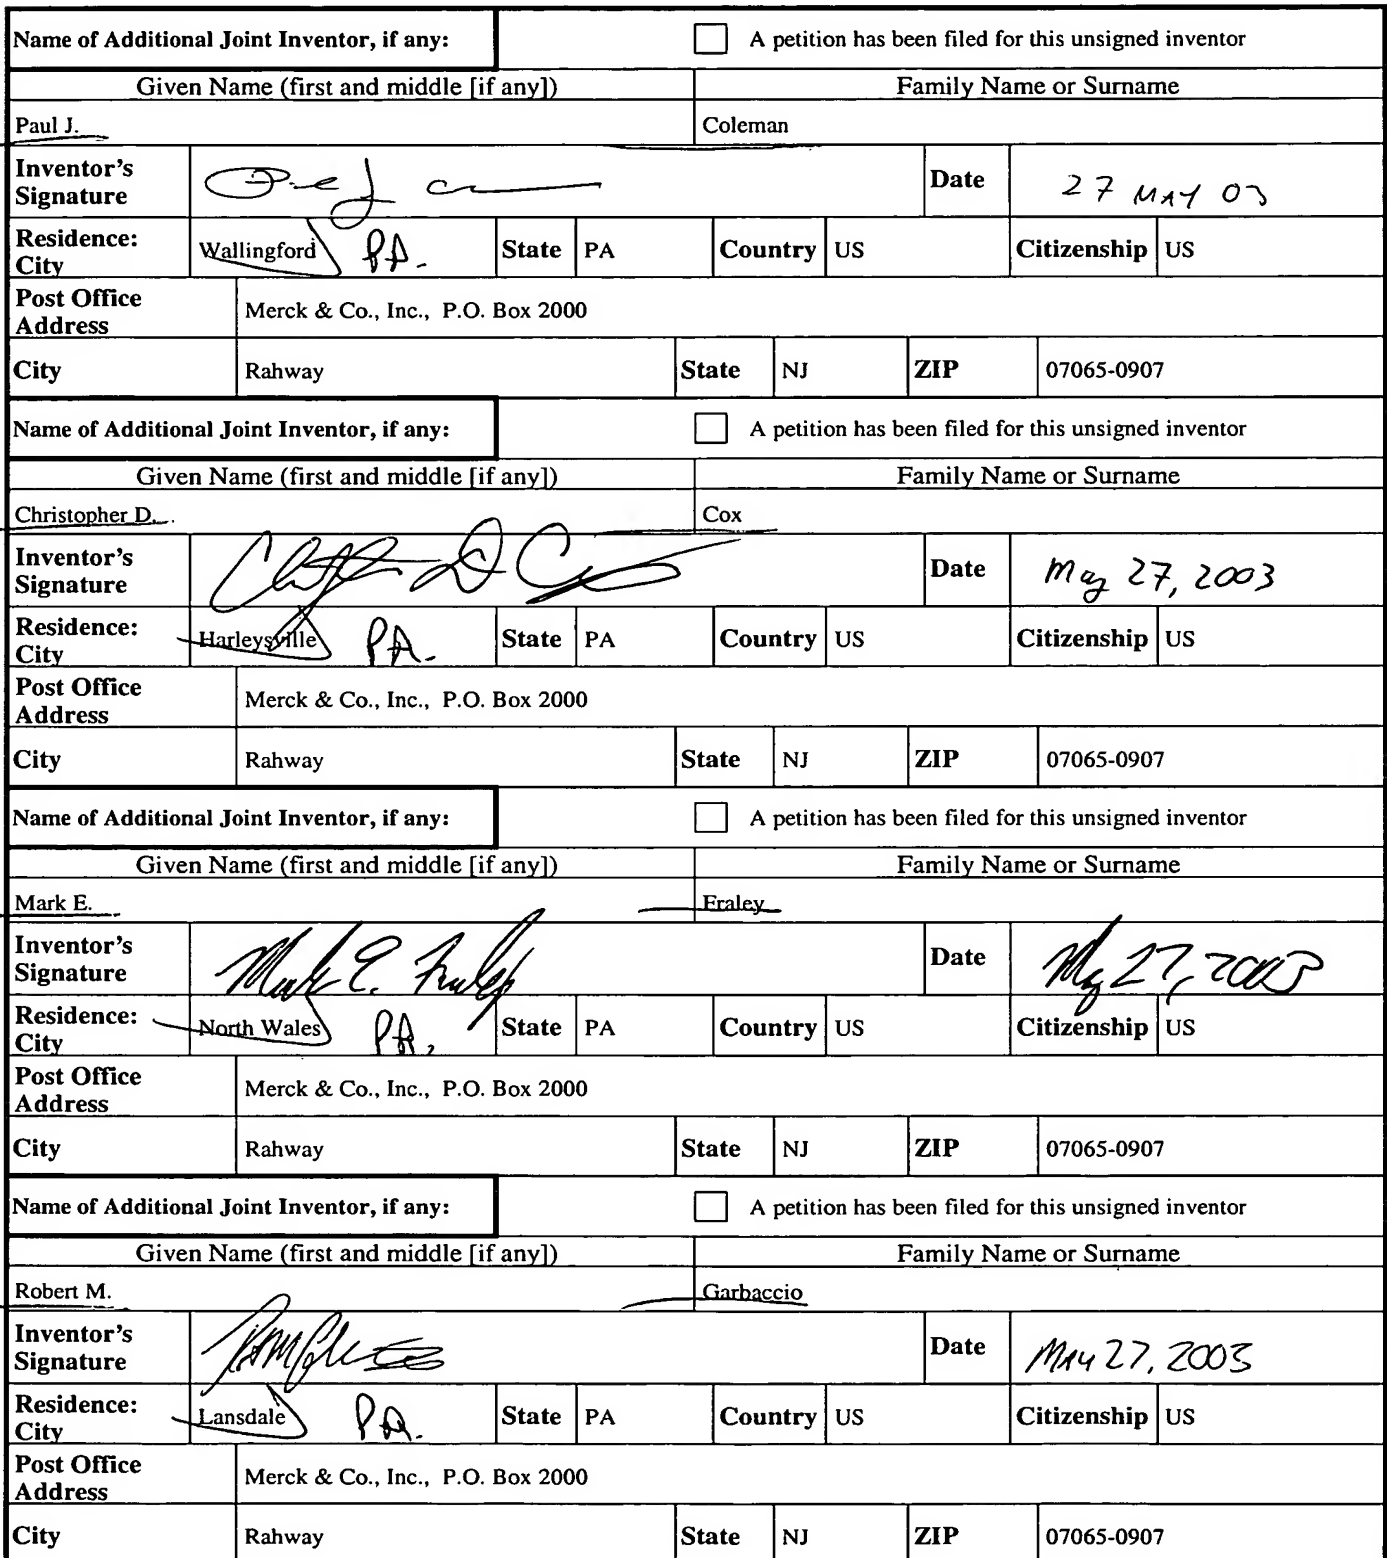 Name of Additional Joint Inventor, if any: A petition has been filed for this unsigned inventor
Given Name (first and middle [if any]) Family Name or Surname
Paul J. Coleman
Inventor's Signature Date 27 MAY 03
Residence: City Wallingford PA. State PA Country US Citizenship US
Post Office Address Merck & Co., Inc., P.O. Box 2000
City Rahway State NJ ZIP 07065-0907
Name of Additional Joint Inventor, if any: A petition has been filed for this unsigned inventor
Given Name (first and middle [if any]) Family Name or Surname
Christopher D. Cox
Inventor's Signature Date May 27, 2003
Residence: City Harleysville PA. State PA Country US Citizenship US
Post Office Address Merck & Co., Inc., P.O. Box 2000
City Rahway State NJ ZIP 07065-0907
Name of Additional Joint Inventor, if any: A petition has been filed for this unsigned inventor
Given Name (first and middle [if any]) Family Name or Surname
Mark E. Fraley
Inventor's Signature Mark E. Fraley Date May 27, 2003
Residence: City North Wales PA. State PA Country US Citizenship US
Post Office Address Merck & Co., Inc., P.O. Box 2000
City Rahway State NJ ZIP 07065-0907
Name of Additional Joint Inventor, if any: A petition has been filed for this unsigned inventor
Given Name (first and middle [if any]) Family Name or Surname
Robert M. Garbaccio
Inventor's Signature Date May 27, 2003
Residence: City Lansdale PA. State PA Country US Citizenship US
Post Office Address Merck & Co., Inc., P.O. Box 2000
City Rahway State NJ ZIP 07065-0907